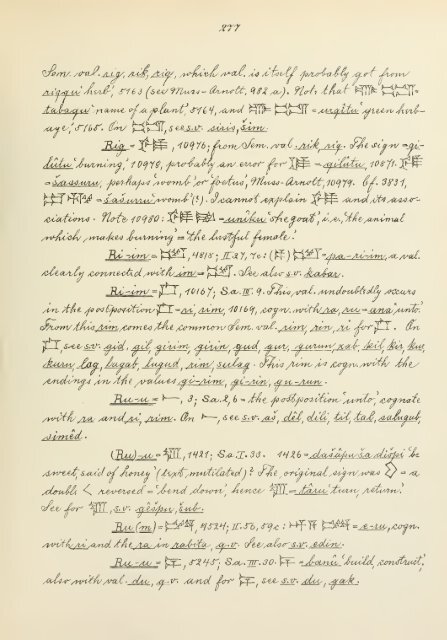 277
Sem. val. rig, rik, riq, which val. is itself probably got from
riqqu 'herb', 5163 (see Muss-Arnolt, 982 a). Note that
tabaqu 'name of a plant', 5164, and = urqîtu 'green herb-
age', 5165. On , see s.v. siris, šim.
Rig = , 10976; from Sem. val. rik, rig. The sign = gi-
lûtu 'burning', 10978, probably an error for = qilûtu, 10871.
= šassuru, perhaps 'womb' or 'foetus', Muss-Arnolt, 10979. Cf. 3831,
= šašurru 'womb' (?). I cannot explain and its asso-
ciations. Note 10980: = unîku 'she goat', i.e., 'the animal
which makes burning' = 'the lustful female.'
Ri-im = , 4815; II. 27, 7c: = pa-ri-im, a val.
clearly connected with im = . See also s.v. kabar.
Ri-im = , 10167; Sa. III. 9. This val. undoubtedly occurs
in the postposition = ri, rim, 10169, cogn. with ra, ru = ana 'unto'.
From this rim comes the common Sem. val. rim, rin, ri for . On
, see s.v. gid, gil, girim, girin, gud, gur, gurun, xab, kil, kir, kur,
kuru, lag, lugab, lugud, rin, sulag. This rim is cogn. with the
endings in the values gi-rim, gi-rin, gu-run.
Ru-u = , 3; Sa. 2, 6 = the postposition 'unto', cognate
with ra and ri, rim. On , see s.v. aš, dil, dili, til, tal, salugub,
simêd.
(Ru)-u = , 1421; Sa. I. 33. 1426 = dašâpu ša dišpi 'be
sweet, said of honey' (text mutilated)? The original sign was = a
double reversed = 'bend down', hence = târu 'turn, return'.
See for , s.v. gêšpu, šub.
Ru(m) = , 4524; II. 56, 59, c: = e-ru, cogn.
with ri and the ra in rabita, q.v. See also s.v. edin.
Ru-u = , 5245; Sa. III. 30. = banû 'build, construct',
also with val. du, q.v. and for , see s.v. du, gak.